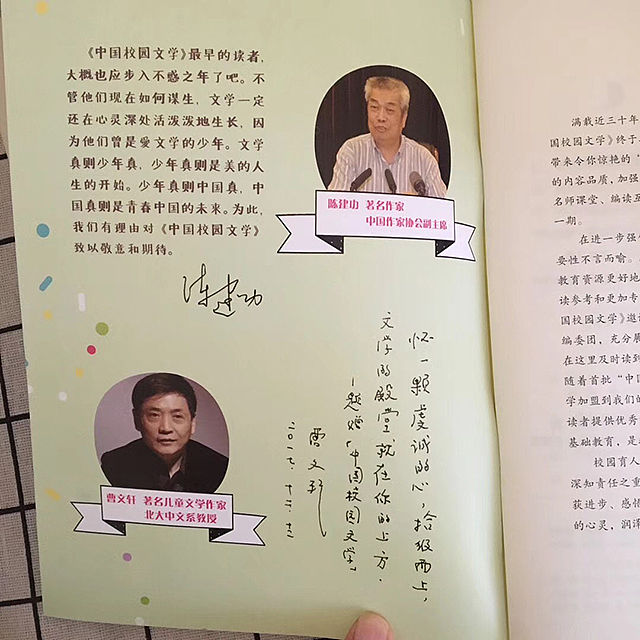 《中国校园文学》最早的读者，
大概也应步入不惑之年了吧。不
管他们现在如何谋生，文学一定
还在心灵深处活泼泼地生长，因
为他们曾是爱文学的少年。文学
真则少年真，少年真则是美的人
生的开始。少年真则中国真，中
国真则是青春中国的未来。为此，
我们有理由对《中国校园文学》
致以敬意和期待。
陈建功
陈建功 著名作家
中国作家协会副主席
怀一颗虔诚的心，拾级而上，
文学的殿堂就在你的上方．
—题赠《中国校园文学》
曹文轩
曹文轩 著名儿童文学作家
北大中文系教授
满载近三十年
国校园文学》终于
带来令你惊艳的
的内容品质，加强
名师课堂、编读互
一期。
在进一步强
要性不言而喻。
教育资源更好地
读参考和更加专
国校园文学》邀
编委团，充分展
在这里及时读到
随着首批“中国
学加盟到我们的
读者提供优秀
基础教育，是
校园育人
深知责任之重
获进步、感悟
的心灵，润泽